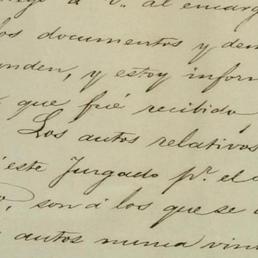 á V. al encarg
los documentos y dem
enden, y estoy inform
que fué recibido
Los autos relativos
este Juzgado pr. el
son á los que se
autos nunca vini